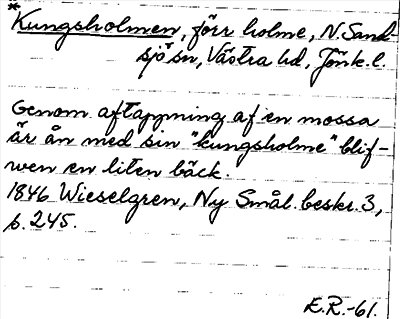 *Kungsholmen, förr holme, N. Sand-
sjö sn, Västra hd, Jönk. l.
Genom aftappning af en mossa
är ån med sin "kungsholme" blif-
wen en liten bäck.
1846 Wieselgren, Ny Smål. beskr. 3,
s. 245.
E.R.-61.